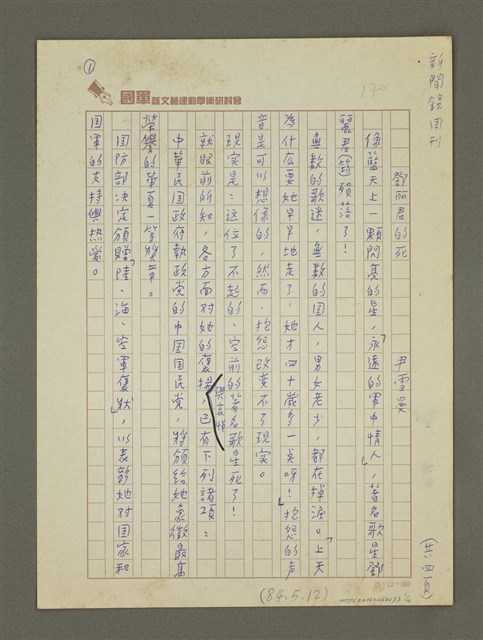 新聞鏡周刊
①
國軍新文藝運動學術研討會
170
鄧丽君的死　尹雪曼
(共四頁)
像藍天上一顆閃亮的星，「永遠的軍中情人」，著名歌星鄧
麗君(筠)殞落了！
無數的歌迷，無數的国人，男女老少，都在掉淚。「上天
為什么要她早早地走了，她才四十歲多一点呀！」抱怨的声
音是可以想像的，然而，抱怨改变不了現实。
現实是：这位了不起的、空前的著名歌星死了！
就眼前的所知，各方面对她的褒揚與哀悼，已有下列諸項：
中華民国政府執政党的中国国民党，将頒給她象徵最高
榮譽的華夏一等獎章。
国防部决定頒贈「陸、海、空軍褒狀」，以表彰她对国家和
国軍的支持與热爱。
(84.5.12)